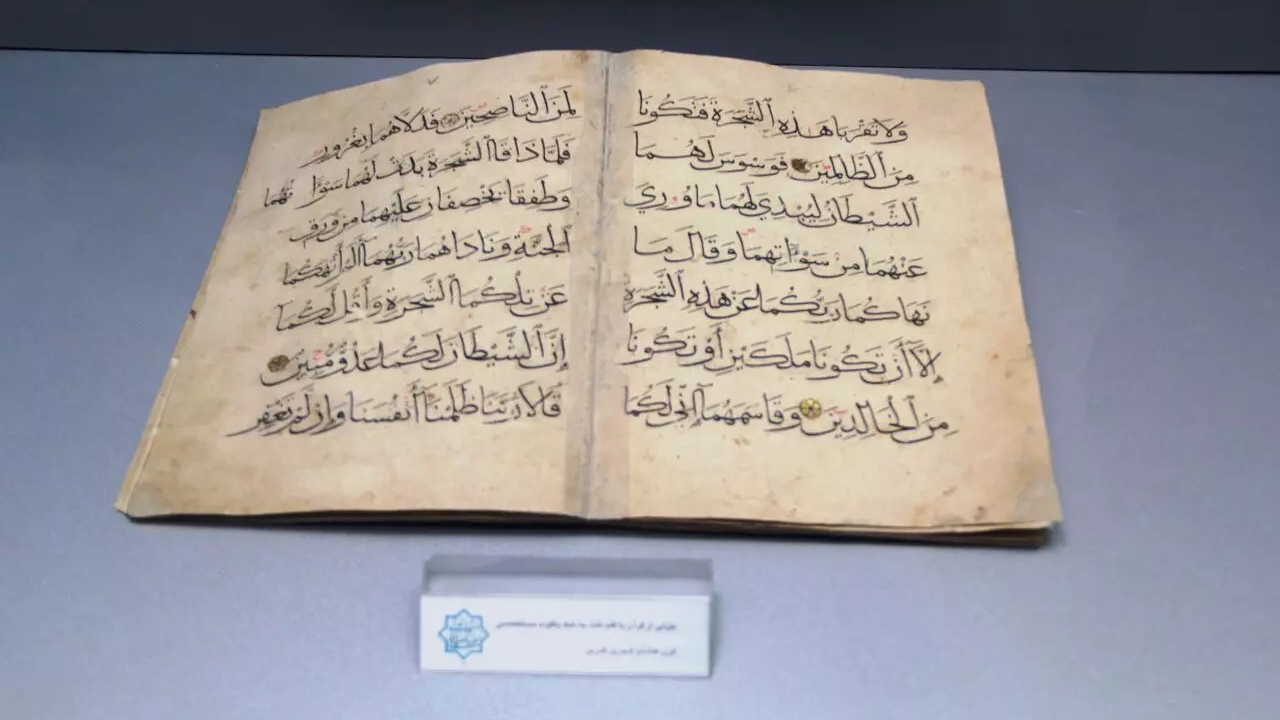 وَلَا تَقْرَبَا هَٰذِهِ ٱلشَّجَرَةَ فَتَكُونَا
مِنَ ٱلظَّالِمِينَ فَوَسْوَسَ لَهُمَا
ٱلشَّيْطَانُ لِيُبْدِيَ لَهُمَا مَا وُورِيَ
عَنْهُمَا مِنْ سَوْآتِهِمَا وَقَالَ مَا
نَهَاكُمَا رَبُّكُمَا عَنْ هَٰذِهِ ٱلشَّجَرَةِ
إِلَّا أَنْ تَكُونَا مَلَكَيْنِ أَوْ تَكُونَا
مِنَ ٱلْخَالِدِينَ وَقَاسَمَهُمَا إِنِّي لَكُمَا
لَمِنَ ٱلنَّاصِحِينَ فَدَلَّاهُمَا بِغُرُورٍ
فَلَمَّا ذَاقَا ٱلشَّجَرَةَ بَدَتْ لَهُمَا سَوْآتُهُمَا
وَطَفِقَا يَخْصِفَانِ عَلَيْهِمَا مِنْ وَرَقِ
ٱلْجَنَّةِ وَنَادَاهُمَا رَبُّهُمَا أَلَمْ أَنْهَكُمَا
عَنْ تِلْكُمَا ٱلشَّجَرَةِ وَأَقُلْ لَكُمَا
إِنَّ ٱلشَّيْطَانَ لَكُمَا عَدُوٌّ مُبِينٌ
قَالَا رَبَّنَا ظَلَمْنَا أَنْفُسَنَا وَإِنْ لَمْ تَغْفِرْ
از قرآن با قلم ثلث به خط یاقوت مستعصمی
قرن هجری قمری